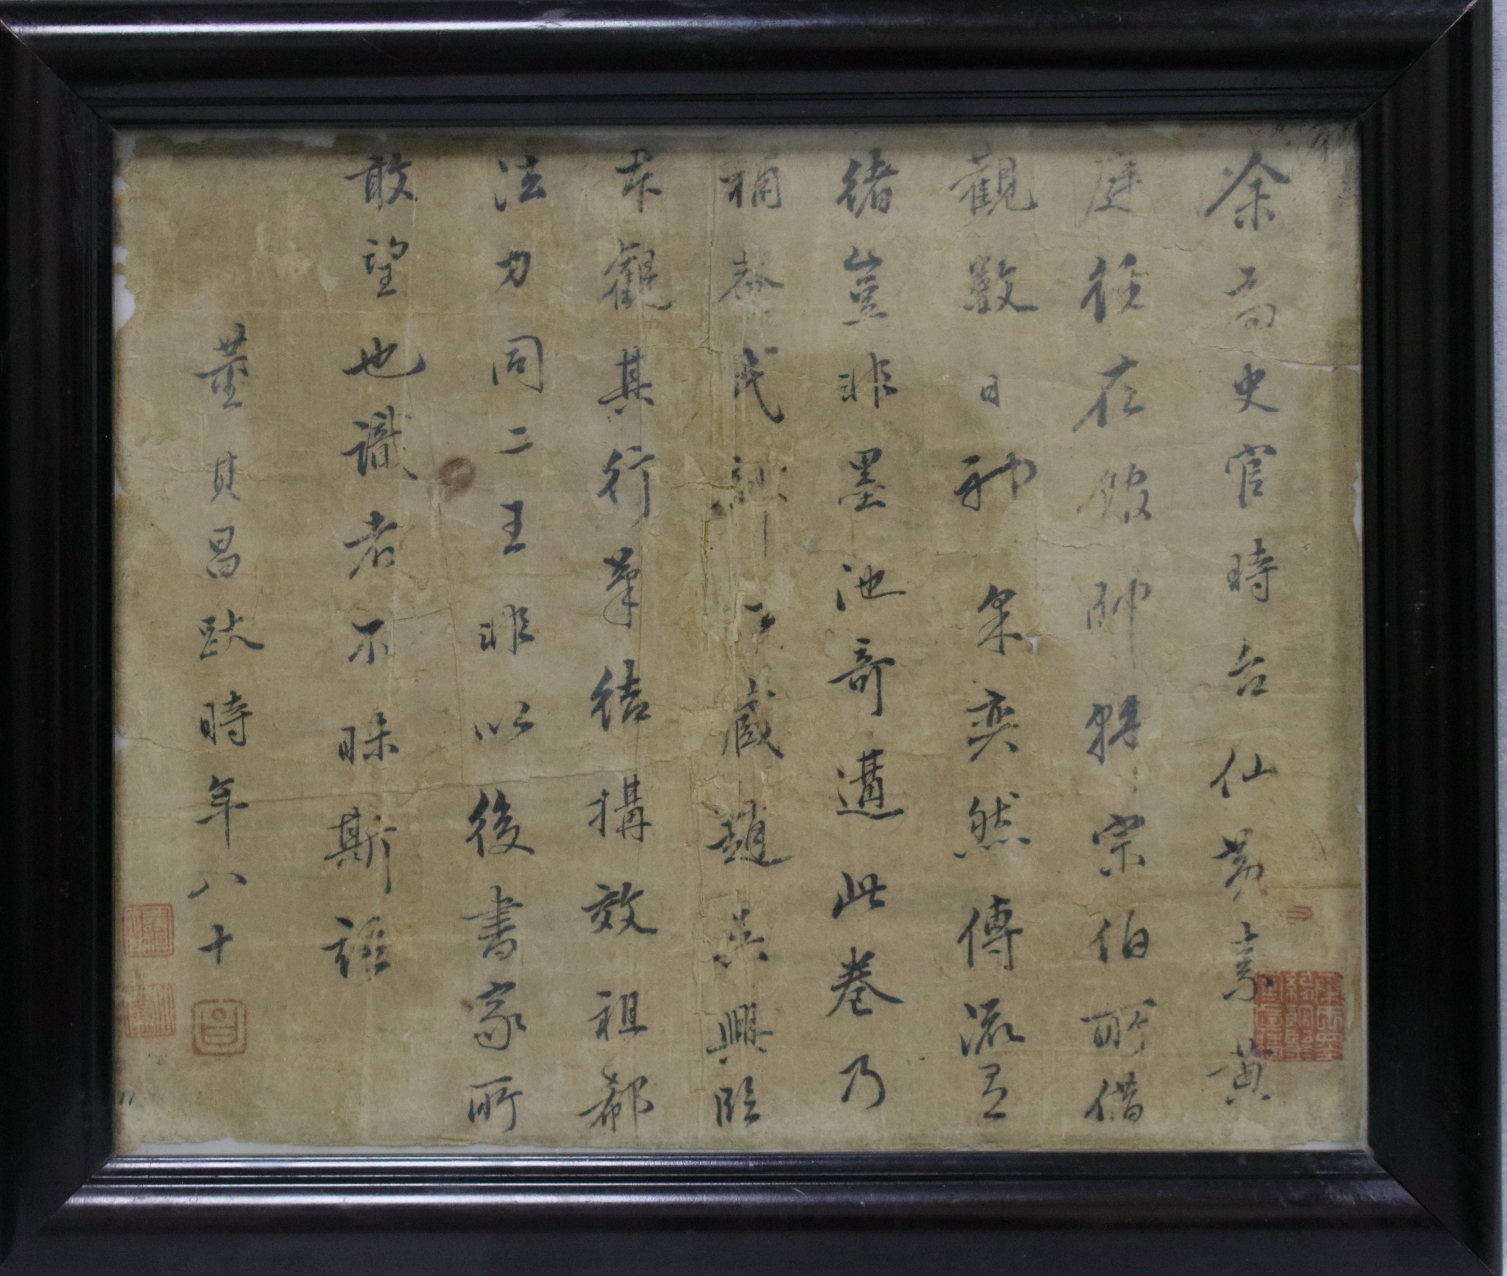 余為史官時台仙蒙素黃
庭經在館師韓宗伯所借
觀數日神采奕然傳流有
緒豈非墨池奇遘此卷乃
稱養氏訓下藏趙吳興臨
本觀其行筆結搆效祖郗
法力同二王非以後書家所
敢望也識者不昧斯語
董其昌跋時年八十